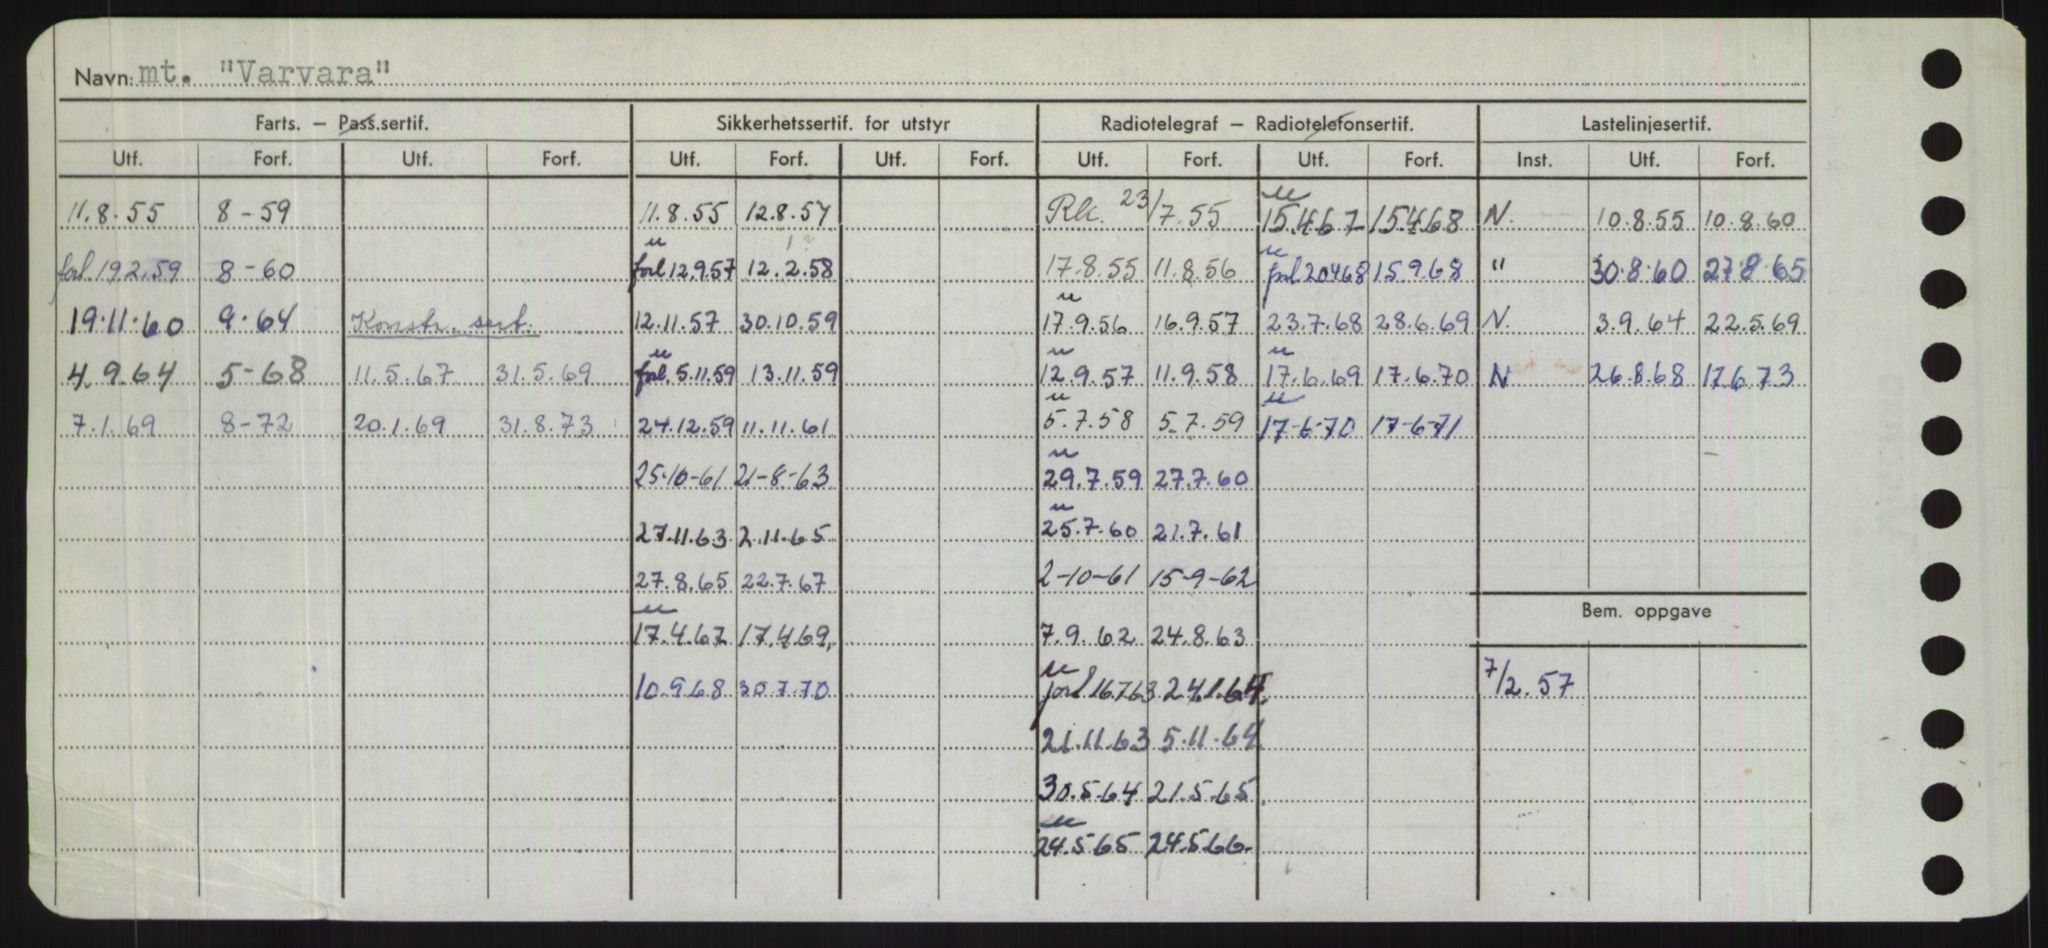 Navn: mt. "Varvara"
Farts. — Pass.sertif. Sikkerhetssertif. for utstyr Radiotelegraf — Radiotelefonsertif. Lastelinjesertif.
Utf. Forf. Utf. Forf. Utf. Forf. Utf. Forf. Utf. Forf. Utf. Forf. Inst. Utf. Forf.
11.8.55 8-59 11.8.55 12.8.57 23/7.55 u 15.4.67 15.4.68 N. 10.8.55 10.8.60
forl. 19.2.59 8-60 u forl 12.9.57 12.2.58 17.8.55 11.8.56 u forl 20.4.68 15.9.68 " 30.8.60 27.8.65
19.11.60 9.64 Konstr. sert. 12.11.57 30.10.59 u 17.9.56 16.9.57 23.7.68 28.6.69 N. 3.9.64 22.5.69
4.9.64 5-68 11.5.67 31.5.69 u forl. 5.11.59 13.11.59 u 12.9.57 11.9.58 u 17.6.69 17.6.70 N 26.8.68 17.6.73
7.1.69 8-72 20.1.69 31.8.73 24.12.59 11.11.61 u 5.7.58 5.7.59 u 17-6-70 17-6-71
25-10-61 21-8-63 u 29.7.59 27.7.60
27.11.63 2.11.65 u 25.7.60 21.7.61
27.8.65 22.7.67 2-10-61 15-9-62
Bem. oppgave
u 17.4.67 17.4.69. 7.9.62 24.8.63
10.9.68 30.7.70 u forl 16.7.63 24.1.64 7/2.57
21.11.63 5.11.64
30.5.64 21.5.65.
u 24.5.65 24.5.66.